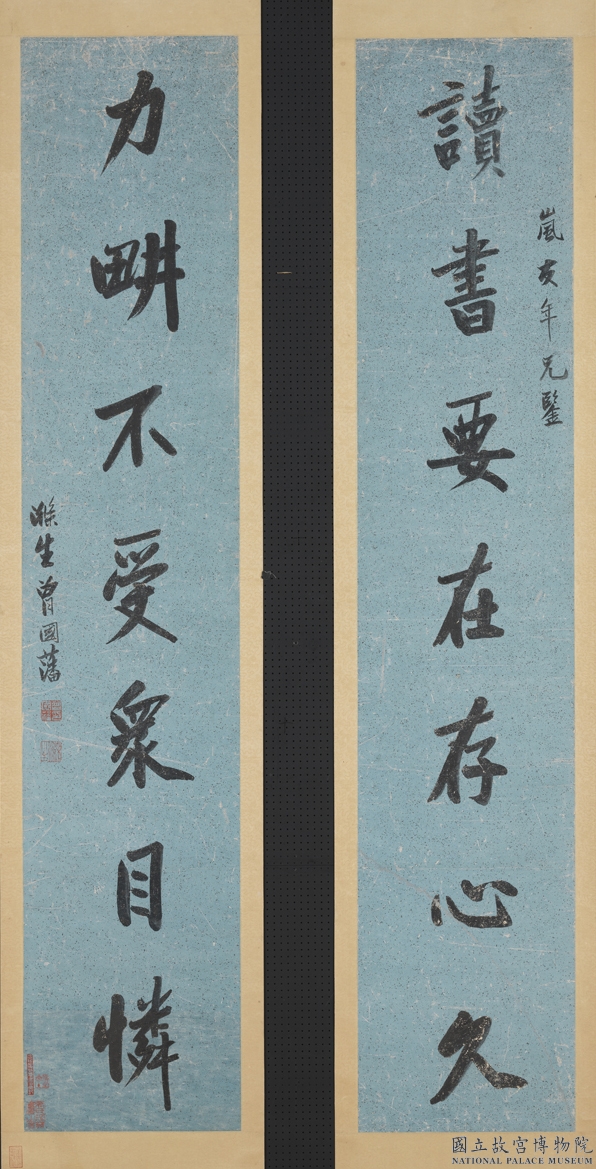 嵐友年兄鑒
讀書要在存心久
力畊不受衆目憐
滌生曾國藩
國立故宮博物院
NATIONAL PALACE MUSEUM